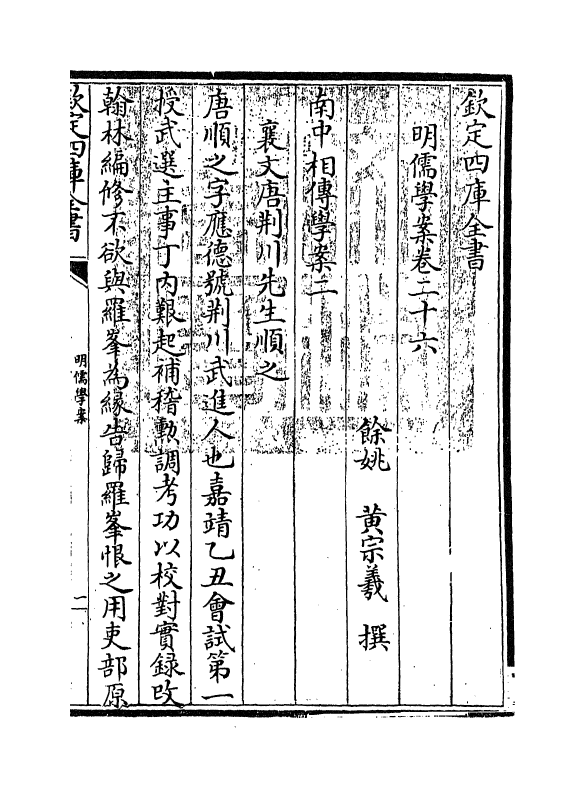 欽定四庫全書
明儒學案卷二十六
餘姚 黄宗羲 撰
南中相傳學案二
襄文唐荆川先生順之
唐順之字應德號荆川武進人也嘉靖乙丑會試第一
授武選主事丁内艱起補稽勲調考功以校對實録改
翰林編修不欲與羅峯為縁告歸羅峯恨之用吏部原
欽定四庫全書
明儒學案